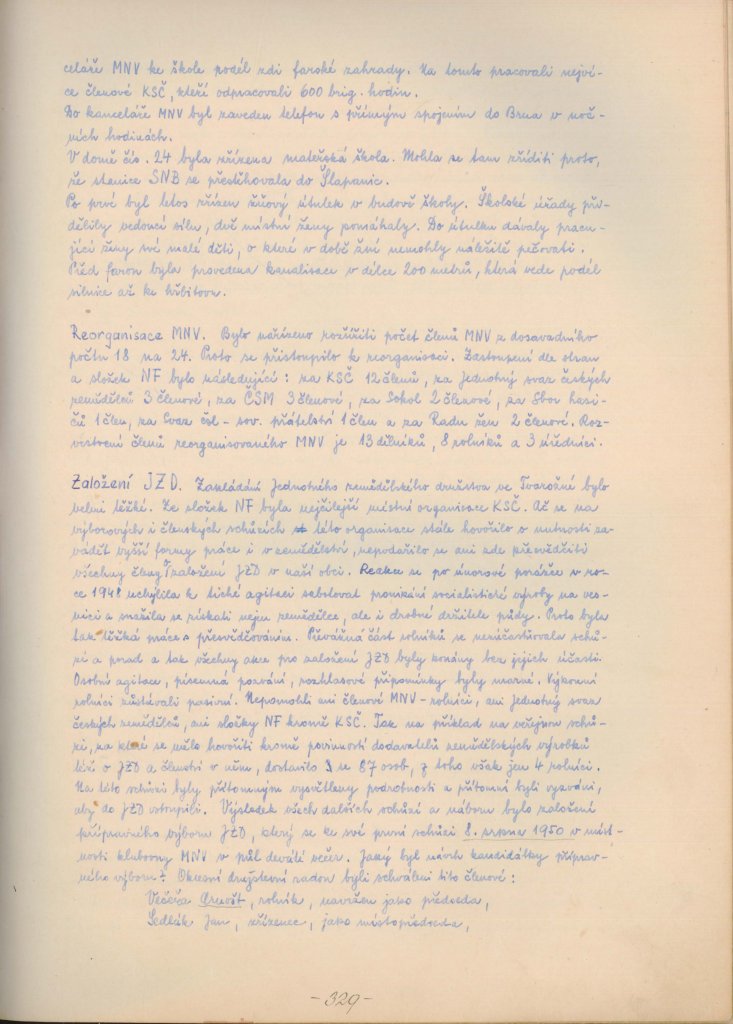 celáře MNV ke škole podél zdi farské zahrady. Na tomto pracovali nejví-
ce členové KSČ, kteří odpracovali 600 brig. hodin.
Do kanceláře MNV byl zaveden telefon s přímým spojením do Brna v noč-
ních hodinách.
V domě čís. 24 byla zřízena mateřská škola. Mohla se tam zříditi proto,
že stanice SNB se přestěhovala do Šlapanic.
Po prvé byl letos zřízen žňový útulek v budově školy. Školské úřady při-
dělily vedoucí sílu, dvě místní ženy pomáhaly. Do útulku dávaly pracu-
jící ženy své malé děti, o které v době žní nemohly náležitě pečovati.
Před farou byla provedena kanalisace v délce 200 metrů, která vede podél
silnice až ke hřbitovu.
Reorganisace MNV. Bylo nařízeno rozšířiti počet členů MNV z dosavadního
počtu 18 na 24. Proto se přistoupilo k reorganisaci. Zastoupení dle stran
a složek NF bylo následující: za KSČ 12 členů, za Jednotný svaz českých
zemědělců 3 členové, za ČSM 3 členové, za Sokol 2 členové, za Sbor hasi-
čů 1 člen, za Svaz čsl - sov. přátelství 1 člen a za Radu žen 2 členové. Roz-
vrstvení členů reorganisovaného MNV je 13 dělníků, 8 rolníků a 3 úředníci.
Založení JZD. Zakládání Jednotného zemědělského družstva ve Tvarožné bylo
velmi těžké. Ze složek NF byla nejčilejší místní organisace KSČ. Ač se na
výborových i členských schůzích této organisace stále hovořilo o nutnosti za-
vádět vyšší formy práce i v zemědělství, nepodařilo se ani zde přesvědčiti
všechny členy o založení JZD v naší obci. Reakce se po únorové porážce v ro-
ce 1948 uchýlila k tiché agitaci sabotovat pronikání socialistické výroby na ves-
nici a snažila se získati nejen zemědělce, ale i drobné držitele půdy. Proto byla
tak těžká práce s přesvědčováním. Převážná část rolníků se nezúčastňovala schů-
zí a porad a tak všechny akce pro založení JZD byly konány bez jejich účasti.
Osobní agitace, písemná pozvání, rozhlasové připomínky byly marné. Výkonní
rolníci zůstávali pasivní. Nepomohli ani členové MNV - rolníci, ani Jednotný svaz
českých zemědělců, ani složky NF kromě KSČ. Tak na příklad na veřejnou schů-
zi, na které se mělo hovořiti kromě povinností dodavatelů zemědělských výrobků
též o JZD a členství v něm, dostavilo se 87 osob, z toho však jen 4 rolníci.
Na této schůzi byly přítomným vysvětleny podrobnosti a přítomní byli vyzváni,
aby do JZD vstoupili. Výsledek všech dalších schůzí a náborů bylo založení
přípravného výboru JZD, který se ke své první schůzi 8. srpna 1950 v míst-
nosti klubovny MNV v půl deváté večer. Jaký byl návrh kandidátky příprav-
ného výboru? Okresní družstevní radou byli schváleni tito členové:
Večeřa Arnošt, rolník, navržen jako předseda,
Sedlák Jan, zřízenec, jako místopředseda,
- 329 -